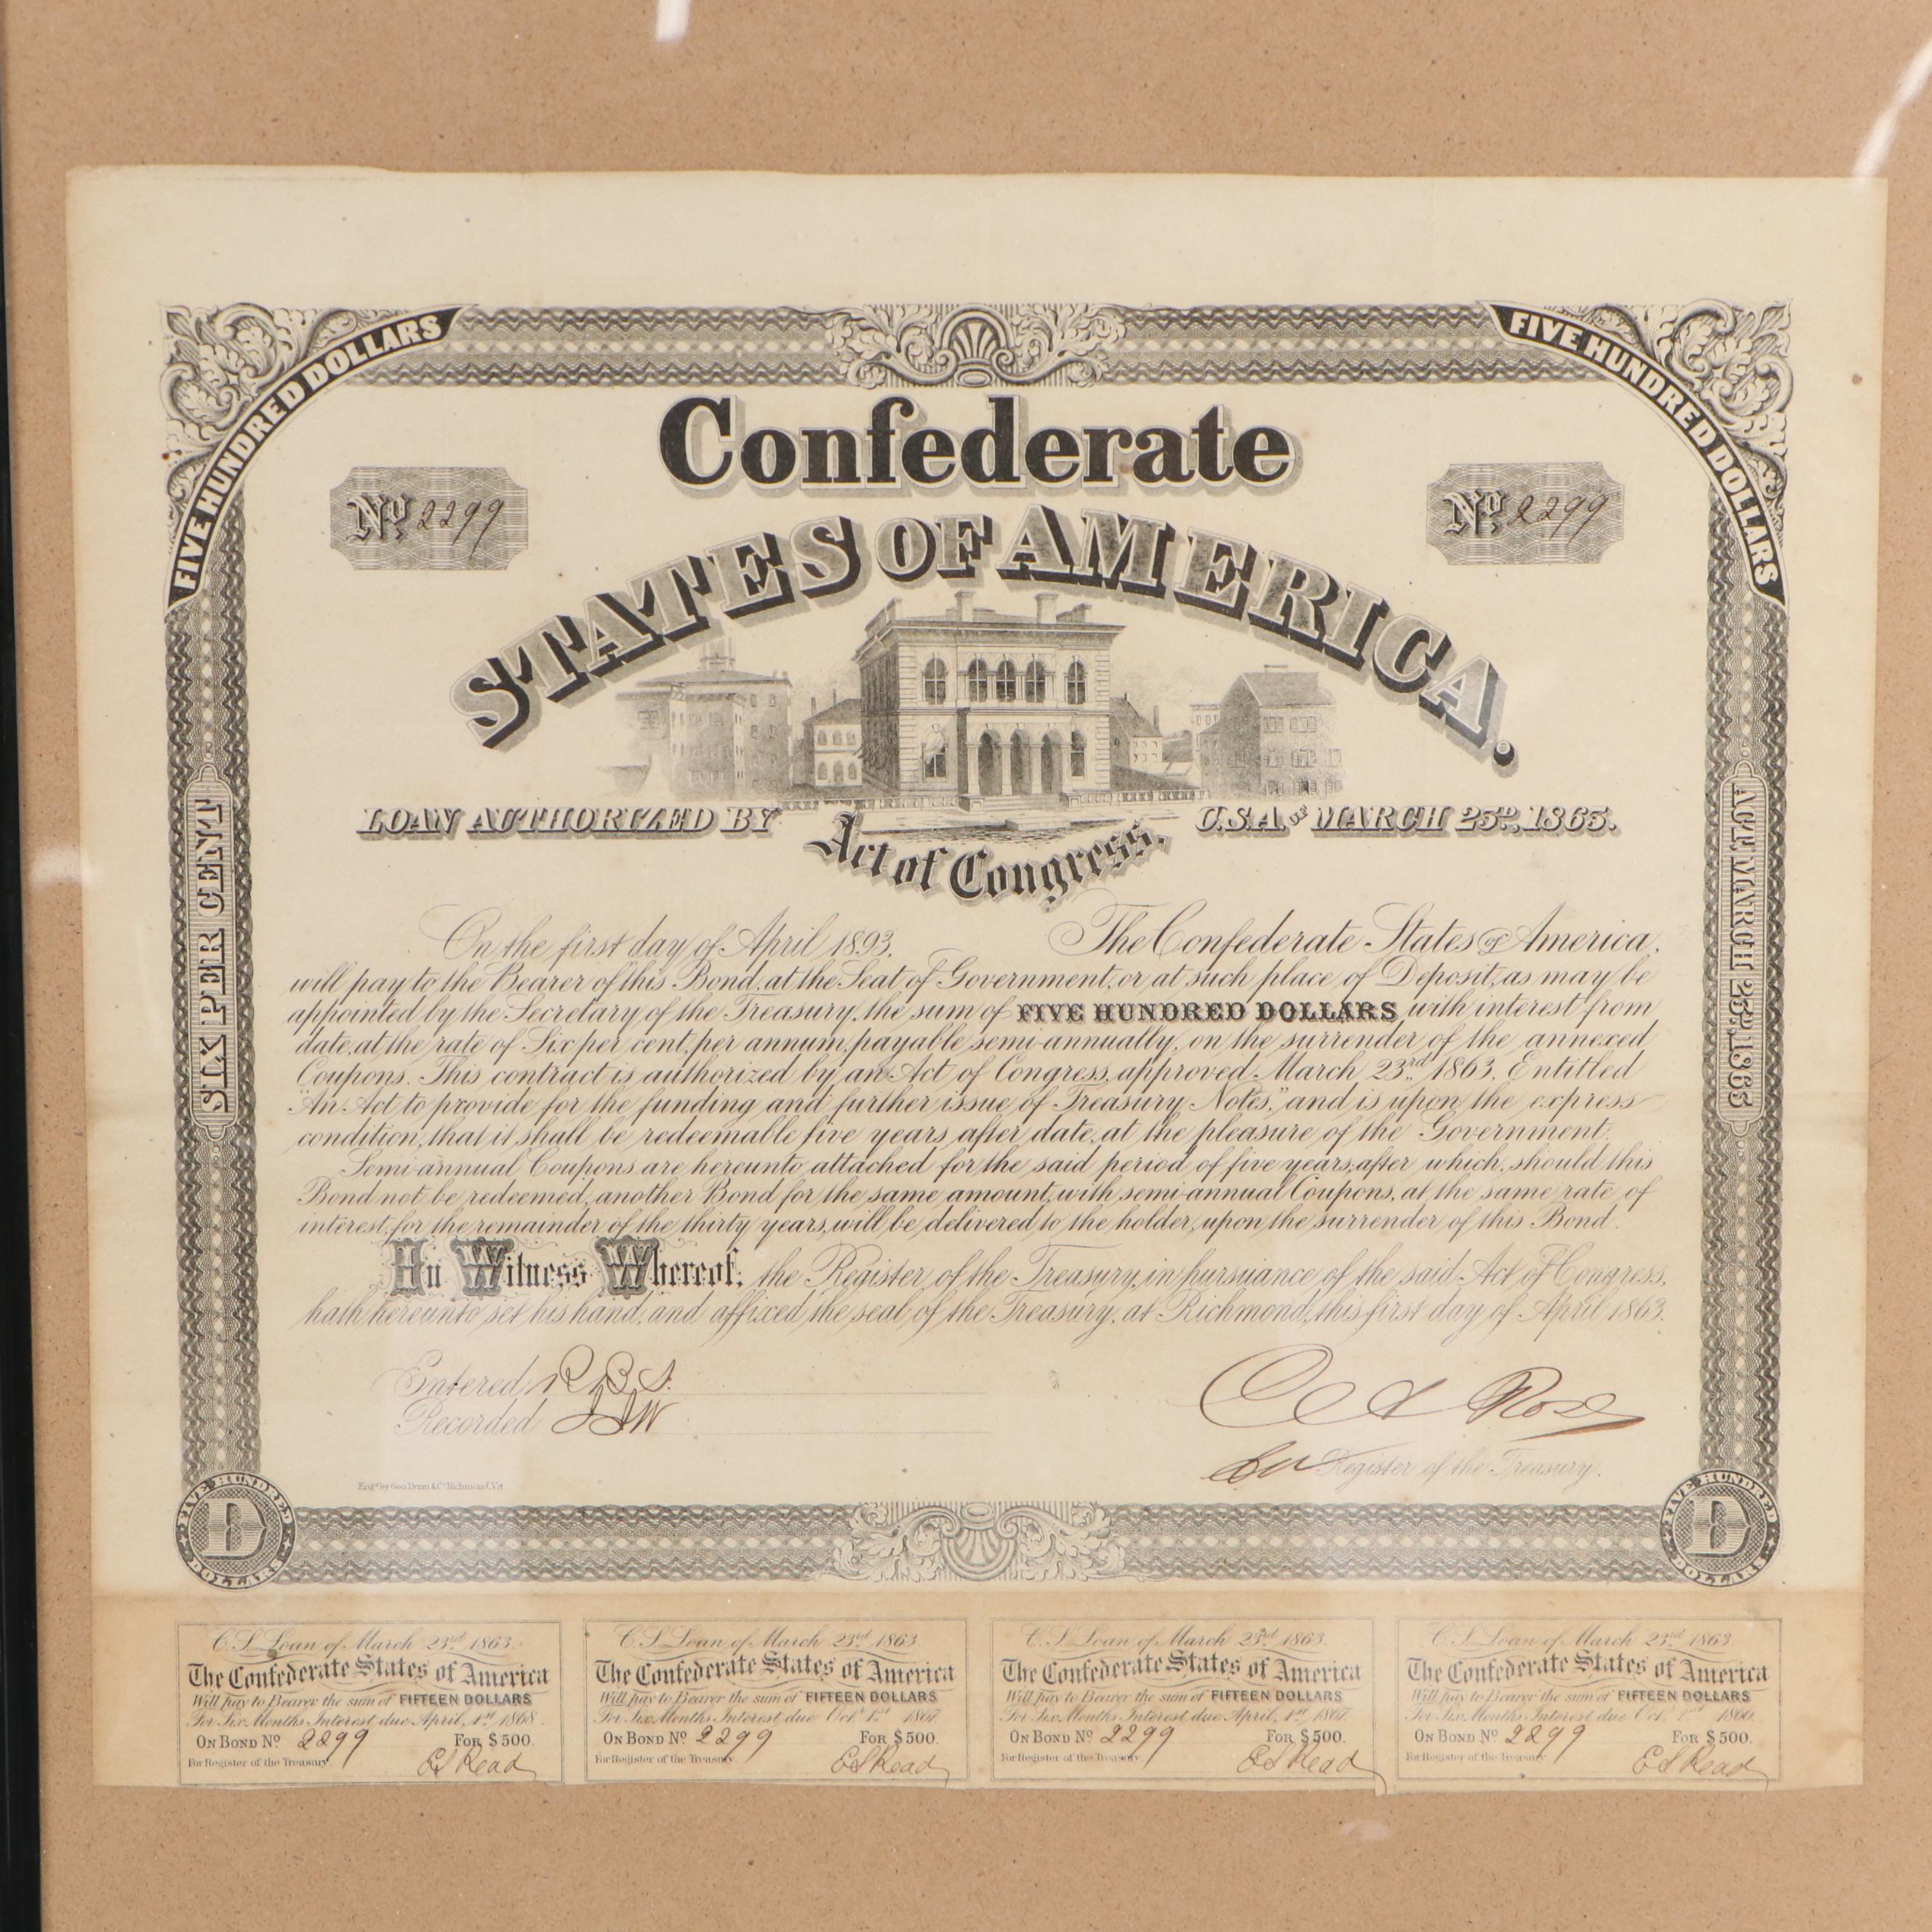 FIVE HUNDRED DOLLARS
FIVE HUNDRED DOLLARS
Confederate
No. 2299
No. 2299
STATES OF AMERICA.
LOAN AUTHORIZED BY
Act of Congress,
C.S.A. OF MARCH 23D, 1863.
SIX PER CENT
ACT MARCH 23D 1863
On the first day of April 1893, The Confederate States of America,
will pay to the Bearer of this Bond, at the Seat of Government, or at such place of Deposit, as may be
appointed by the Secretary of the Treasury, the sum of FIVE HUNDRED DOLLARS with interest from
date, at the rate of Six per cent, per annum, payable semi-annually, on the surrender of the annexed
Coupons. This contract is authorized by an Act of Congress, approved March 23rd 1863, Entitled
"An Act to provide for the funding and further issue of Treasury Notes," and is upon the express
condition, that it shall be redeemable five years after date, at the pleasure of the Government.
Semi-annual Coupons are hereunto attached for the said period of five years, after which, should this
Bond not be redeemed, another Bond for the same amount, with semi-annual Coupons, at the same rate of
interest, for the remainder of the thirty years, will be delivered to the holder, upon the surrender of this Bond.
In Witness Whereof, the Register of the Treasury, in pursuance of the said Act of Congress,
hath hereunto set his hand, and affixed the seal of the Treasury, at Richmond, this first day of April 1863.
Entered
Recorded
Rose
Register of the Treasury.
Engd by Geo. Dunn & Co. Richmond, Va.
FIVE HUNDRED D DOLLARS
FIVE HUNDRED D DOLLARS
C.S. Loan of March 23rd 1863.
The Confederate States of America
Will pay to Bearer the sum of FIFTEEN DOLLARS
For Six Months Interest due April, 1st 1868.
ON BOND No. 2299 FOR $500.
For Register of the Treasury. ES Read
C.S. Loan of March 23rd 1863.
The Confederate States of America
Will pay to Bearer the sum of FIFTEEN DOLLARS
For Six Months Interest due Oct. 1st 1867
ON BOND No. 2299 FOR $500.
For Register of the Treasury ES Read
C.S. Loan of March 23rd 1863.
The Confederate States of America
Will pay to Bearer the sum of FIFTEEN DOLLARS
For Six Months Interest due April, 1st 1867.
ON BOND No. 2299 FOR $500.
For Register of the Treasury ES Read
C.S. Loan of March 23rd 1863
The Confederate States of America
Will pay to Bearer the sum of FIFTEEN DOLLARS
For Six Months Interest due Oct. 1st 1866.
ON BOND No. 2299 FOR $500.
For Register of the Treasury. ES Read